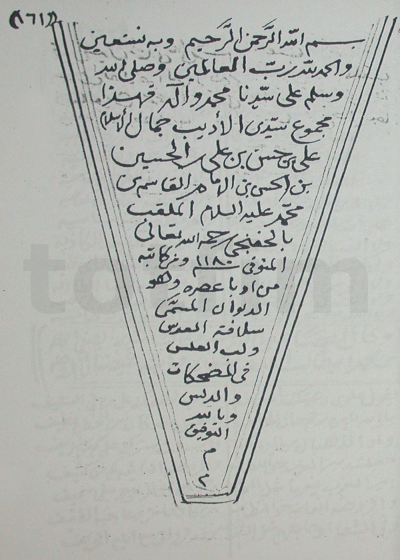 (١٦١)
بسم الله الرَّحمن الرَّحيم وبه نستعين
والحمد لله رب العالمين وصلى الله
وسلم على سيّدنا محمد وآله فهذا
مجموع سيّدي الأديب جمال الإسلام
علي بن حسن بن علي بن الحسين
بن الحسن بن الامام القاسم بن
محمّد عليه السلام الملقب
بالخفنجي رحمه الله تعالى
المتوفى ١١٨٠
من ادباء عصره وهو
الديوان المسمّى
سلافة العدس
ولب العلس
في المضحكات
والدلس
وبالله
التوفيق
م
م